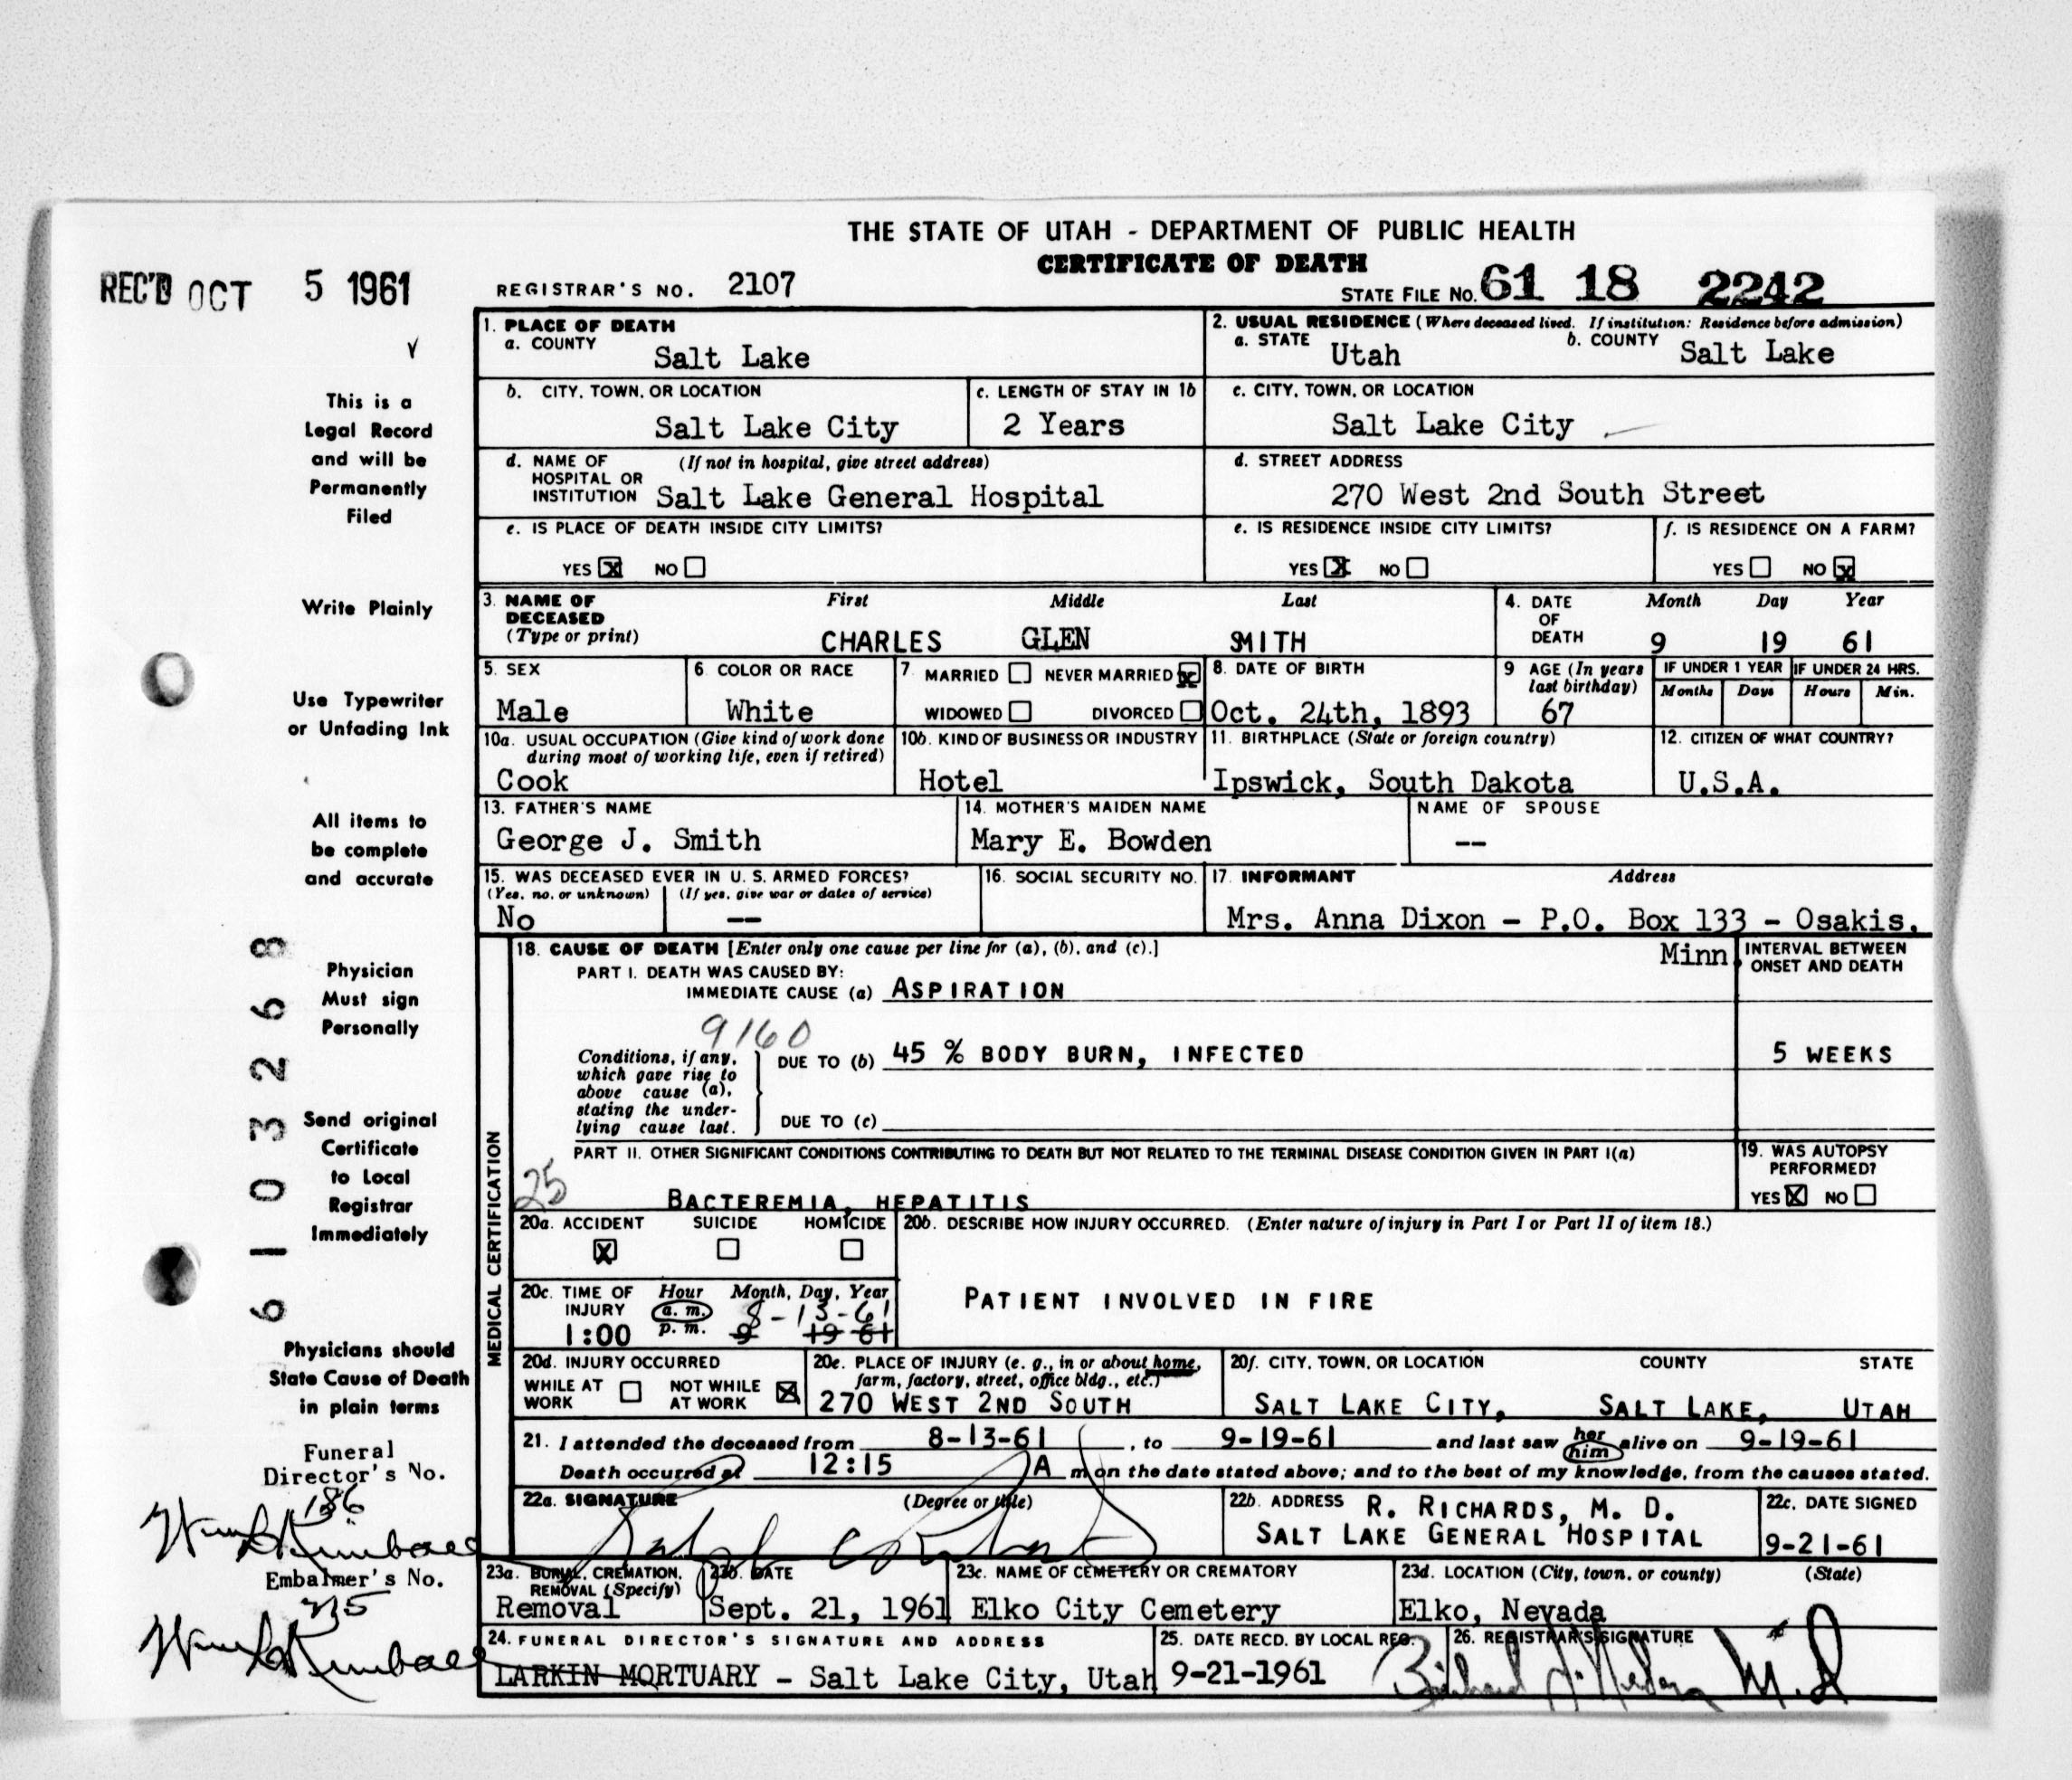 THE STATE OF UTAH - DEPARTMENT OF PUBLIC HEALTH
CERTIFICATE OF DEATH
REC'D OCT 5 1961
REGISTRAR'S NO. 2107
STATE FILE NO. 61 18 2242
This is a
Legal Record
and will be
Permanently
Filed
Write Plainly
Use Typewriter
or Unfading Ink
All items to
be complete
and accurate
Physician
Must sign
Personally
Send original
Certificate
to Local
Registrar
Immediately
Physicians should
State Cause of Death
in plain terms
Funeral
Director's No.
186
Wm L Kimball
Embalmer's No.
Wm L Kimball
61 03268
1. PLACE OF DEATH
a. COUNTY Salt Lake
2. USUAL RESIDENCE (Where deceased lived. If institution: Residence before admission)
a. STATE Utah b. COUNTY Salt Lake
b. CITY, TOWN, OR LOCATION Salt Lake City
c. LENGTH OF STAY IN 1b 2 Years
c. CITY, TOWN, OR LOCATION Salt Lake City
d. NAME OF (If not in hospital, give street address)
HOSPITAL OR
INSTITUTION Salt Lake General Hospital
d. STREET ADDRESS
270 West 2nd South Street
e. IS PLACE OF DEATH INSIDE CITY LIMITS?
YES X NO
e. IS RESIDENCE INSIDE CITY LIMITS?
YES X NO
f. IS RESIDENCE ON A FARM?
YES NO X
3. NAME OF First Middle Last
DECEASED
(Type or print) CHARLES GLEN SMITH
4. DATE Month Day Year
OF
DEATH 9 19 61
5. SEX
Male
6. COLOR OR RACE
White
7. MARRIED NEVER MARRIED X
WIDOWED DIVORCED
8. DATE OF BIRTH
Oct. 24th, 1893
9 AGE (In years
last birthday)
67
IF UNDER 1 YEAR
Months Days
IF UNDER 24 HRS.
Hours Min.
10a. USUAL OCCUPATION (Give kind of work done
during most of working life, even if retired)
Cook
10b. KIND OF BUSINESS OR INDUSTRY
Hotel
11. BIRTHPLACE (State or foreign country)
Ipswick, South Dakota
12. CITIZEN OF WHAT COUNTRY?
U.S.A.
13. FATHER'S NAME
George J. Smith
14. MOTHER'S MAIDEN NAME
Mary E. Bowden
NAME OF SPOUSE
--
15. WAS DECEASED EVER IN U. S. ARMED FORCES?
(Yes, no, or unknown) (If yes, give war or dates of service)
No --
16. SOCIAL SECURITY NO.
17. INFORMANT Address
Mrs. Anna Dixon - P.O. Box 133 - Osakis,
Minn.
MEDICAL CERTIFICATION
18. CAUSE OF DEATH [Enter only one cause per line for (a), (b), and (c).]
INTERVAL BETWEEN
ONSET AND DEATH
PART I. DEATH WAS CAUSED BY:
IMMEDIATE CAUSE (a) ASPIRATION
9160
Conditions, if any,
which gave rise to
above cause (a),
stating the under-
lying cause last.
DUE TO (b) 45 % BODY BURN, INFECTED 5 WEEKS
DUE TO (c)
PART II. OTHER SIGNIFICANT CONDITIONS CONTRIBUTING TO DEATH BUT NOT RELATED TO THE TERMINAL DISEASE CONDITION GIVEN IN PART I(a)
25
BACTEREMIA, HEPATITIS
19. WAS AUTOPSY
PERFORMED?
YES X NO
20a. ACCIDENT SUICIDE HOMICIDE
X
20b. DESCRIBE HOW INJURY OCCURRED. (Enter nature of injury in Part I or Part II of item 18.)
PATIENT INVOLVED IN FIRE
20c. TIME OF Hour Month, Day, Year
INJURY a. m. 8-13-61
1:00 p. m. 9 19 61
20d. INJURY OCCURRED
WHILE AT NOT WHILE
WORK AT WORK X
20e. PLACE OF INJURY (e. g., in or about home,
farm, factory, street, office bldg., etc.)
270 WEST 2ND SOUTH
20f. CITY, TOWN, OR LOCATION COUNTY STATE
SALT LAKE CITY, SALT LAKE, UTAH
21. I attended the deceased from 8-13-61, to 9-19-61 and last saw her him alive on 9-19-61
Death occurred at 12:15 A m on the date stated above; and to the best of my knowledge, from the causes stated.
22a. SIGNATURE (Degree or title)
22b. ADDRESS R. RICHARDS, M. D.
SALT LAKE GENERAL HOSPITAL
22c. DATE SIGNED
9-21-61
23a. BURIAL, CREMATION,
REMOVAL (Specify)
Removal
23b. DATE
Sept. 21, 1961
23c. NAME OF CEMETERY OR CREMATORY
Elko City Cemetery
23d. LOCATION (City, town, or county) (State)
Elko, Nevada
24. FUNERAL DIRECTOR'S SIGNATURE AND ADDRESS
LARKIN MORTUARY - Salt Lake City, Utah
25. DATE RECD. BY LOCAL REG.
9-21-1961
26. REGISTRAR'S SIGNATURE
M.D